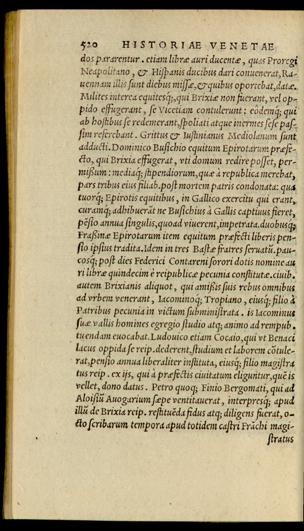 520 HISTORIAE VENETAE
dos pararentur. etiam libræ auri ducentæ, quas Proregi
Neapolitano, & Hispanis ducibus dari conuenerat, Ra-
uennam illis sunt diebus missæ, & quibus oporebat, datæ.
Milites interea equitesq;, qui Brixiæ non fuerant, vel op-
pido effugerant, se Vicetiam contulerunt: eódemq; qui
ab hostibus se redemerant, spoliati atque inermes sese pas-
sim referebant. Grittus & Iustinianus Mediolanum sunt
adducti. Dominico Busichio equitum Epirotarum præfe-
cto, qui Brixia effugerat, vti domum redire posset, per-
mißum: mediaq; stipendiorum, quæ à republica merebat,
pars tribus eius filiab. post mortem patris condonata: qua
tuorq; Epirotis equitibus, in Gallico exercitu qui erant,
curamq; adhibuerāt ne Busichius à Gallis captiuus fieret,
pēsio annua singulis, quoad viuerent, impetrata. duobusq;
Fraßinæ Epirotarum item equitum præfecti liberis pen-
sio ipsius tradita. Idem in tres Bastæ fratres seruatū. pau-
cosq; post dies Federici Contareni sorori dotis nomine au
ri libræ quindecim è reipublicæ pecunia constitutæ. ciuib.
autem Brixianis aliquot, qui amißis suis rebus omnibus
ad vrbem venerant, Iacominoq; Tropiano, eiusq; filio à
Patribus pecunia in victum subministrata. is Iacominus
suæ vallis homines egregio studio atq; animo ad rempub.
tuendam euocabat. Ludouico etiam Cocaio, qui vt Benaci
lacus oppida se reip. dederent, studium et laborem cōtule-
rat, pensio annua liberaliter instituta, eiusq; filio magistra
tus reip. ex ijs, qui à præfectis ciuitatum eliguntur, quē is
vellet, dono datus. Petro quoq; Finio Bergomati, qui ad
Aloisiū Auogarium sæpe ventitauerat, interpresq; apud
illū de Brixia reip. restituēda fidus atq; diligens fuerat, o-
cto scribarum tempora apud totidem castri Frāchi magi-
stratus